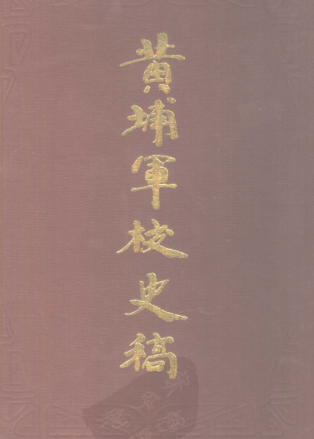 黄埔軍校史稿